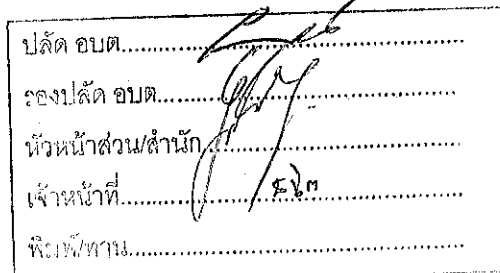 ปลัด อบต.
รองปลัด อบต.
หัวหน้าส่วน/สำนัก
เจ้าหน้าที่
พิมพ์/ทาน